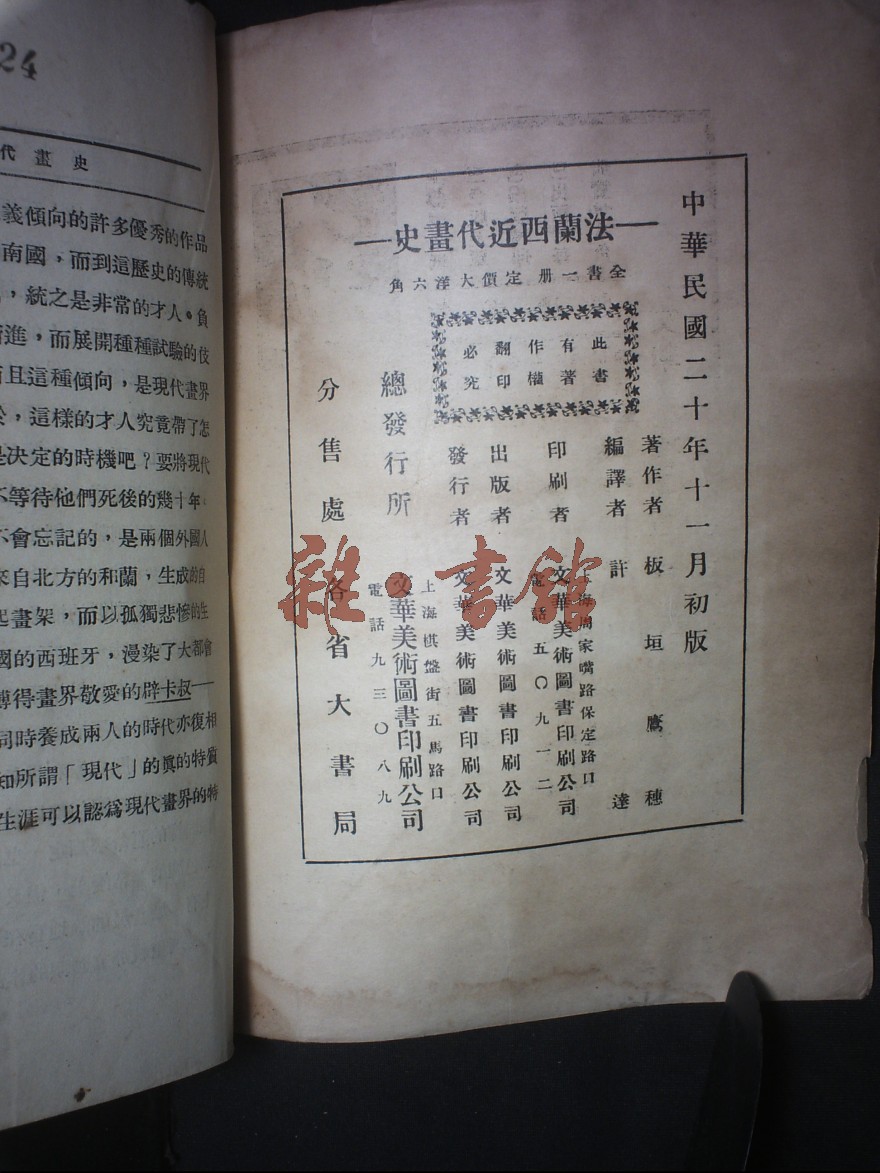 中華民國二十年十一月初版
—法蘭西近代畫史—
全書一册定價大洋六角
此書
有著
作權
翻印
必究
著作者 板垣鷹穗
編譯者 許達
印刷者 文華美術圖書印刷公司
電話五〇九一二
出版者 文華美術圖書印刷公司
發行者 文華美術圖書印刷公司
總發行所 文華美術圖書印刷公司
上海棋盤街五馬路口
電話九三〇八九
分售處 各省大書局
雜·書館
24
代畫史
義傾向的許多優秀的作品
南國，而到這歷史的傳統
，統之是非常的才人。負
進，而展開種種試驗的伎
且這種傾向，是現代畫界
，這樣的才人究竟帶了怎
是決定的時機吧？要將現代
不等待他們死後的幾十年，
不會忘記的，是兩個外國人
來自北方的和蘭，生成的自
起畫架，而以孤獨悲慘的生
國的西班牙，漫染了大都會
博得畫界敬愛的辟卡叔—
同時養成兩人的時代亦復相
知所謂「現代」的眞的特質
生涯可以認爲現代畫界的特